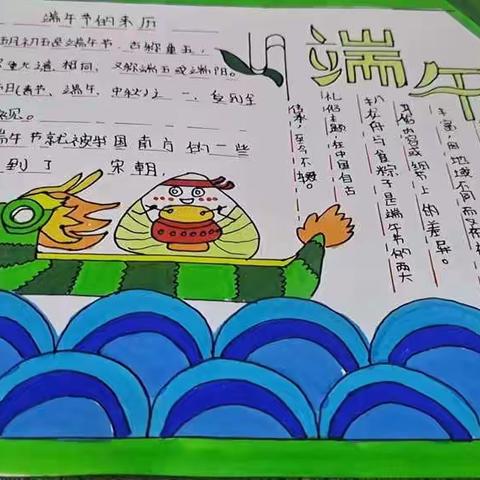 端午节的来历
五月初五是端午节、古称重五,
重九之道相同、又称端五或端阳。
节日(春节、端午、中秋)之一、
见。
端午节就被中国南方的一些
到了 宋朝,
端午
丰富,因地域不同而
习俗内容或细节上的差异。
扒龙舟与食粽子是端午节的两大
礼俗主题,在中国自古
传承,至今不辍。